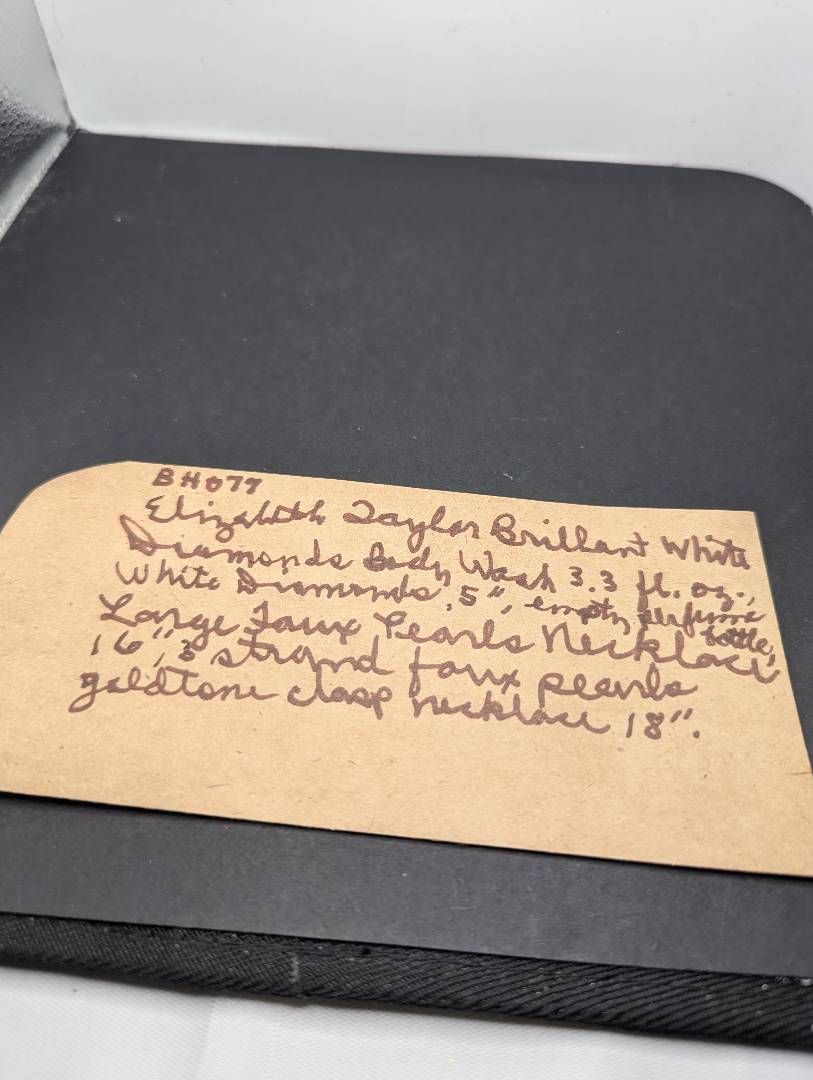 BH077
Elizabeth Taylor Brillant White
Diamonds Body Wash 3.3 fl. oz.,
White Diamonds .5", empty perfume bottle,
Large Faux Pearls Necklace
16", 3 strand faux pearls
goldtone clasp necklace 18".